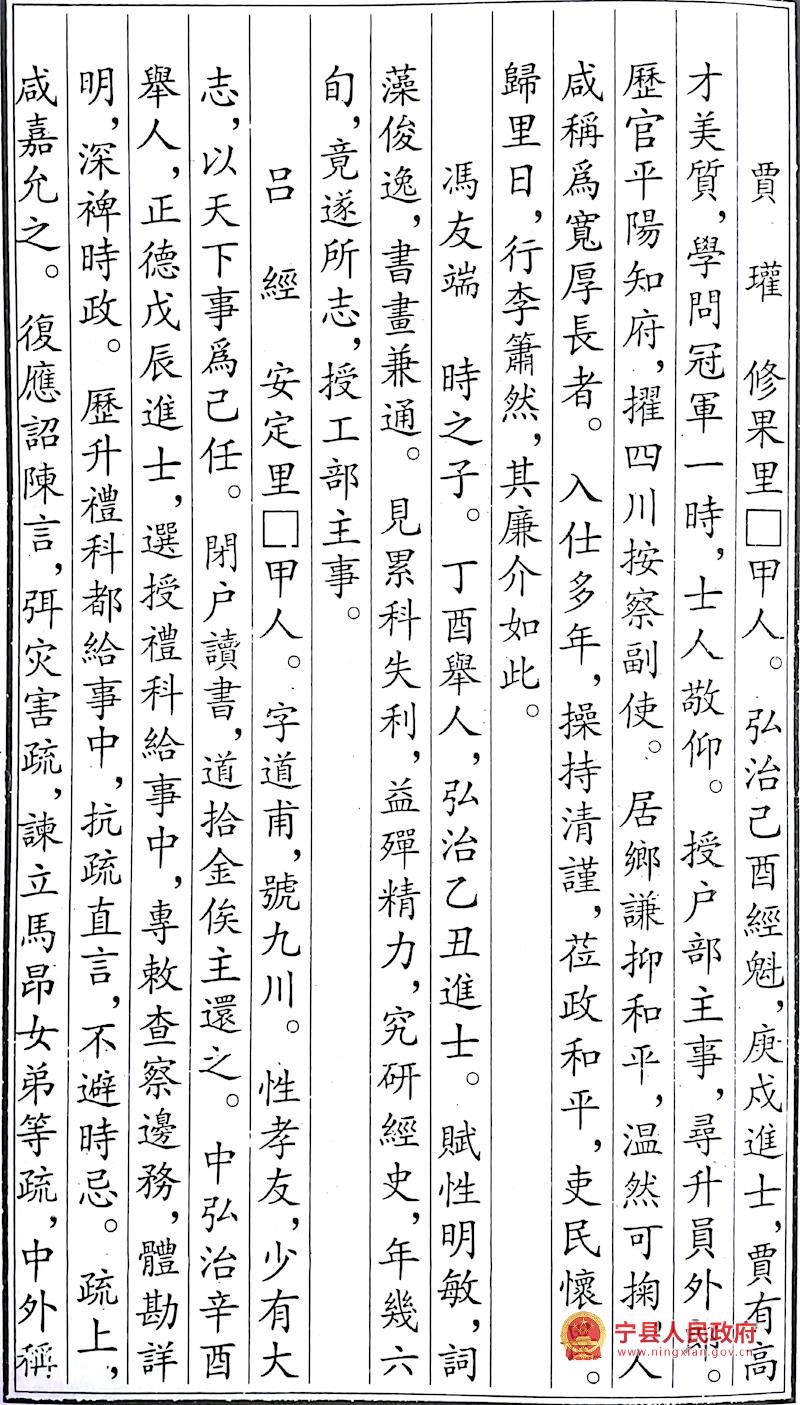 賈　瓘　修果里□甲人。弘治己酉經魁，庚戌進士，賈有高
才美質，學問冠軍一時，士人敬仰。授户部主事，尋升員外郎。
歷官平陽知府，擢四川按察副使。居鄉謙抑和平，温然可掬，人
咸稱爲寬厚長者。入仕多年，操持清謹，莅政和平，吏民懷。
歸里日，行李簫然，其廉介如此。
馮友端　時之子。丁酉舉人，弘治乙丑進士。賦性明敏，詞
藻俊逸，書畫兼通。見累科失利，益殫精力，究研經史，年幾六
旬，竟遂所志，授工部主事。
吕　經　安定里□甲人。字道甫，號九川。性孝友，少有大
志，以天下事爲己任。閉户讀書，道拾金俟主還之。中弘治辛酉
舉人，正德戊辰進士，選授禮科給事中，專敕查察邊務，體勘詳
明，深裨時政。歷升禮科都給事中，抗疏直言，不避時忌。疏上，
咸嘉允之。復應詔陳言，弭灾害疏，諫立馬昂女弟等疏，中外稱
宁县人民政府
www.ningxian.gov.cn